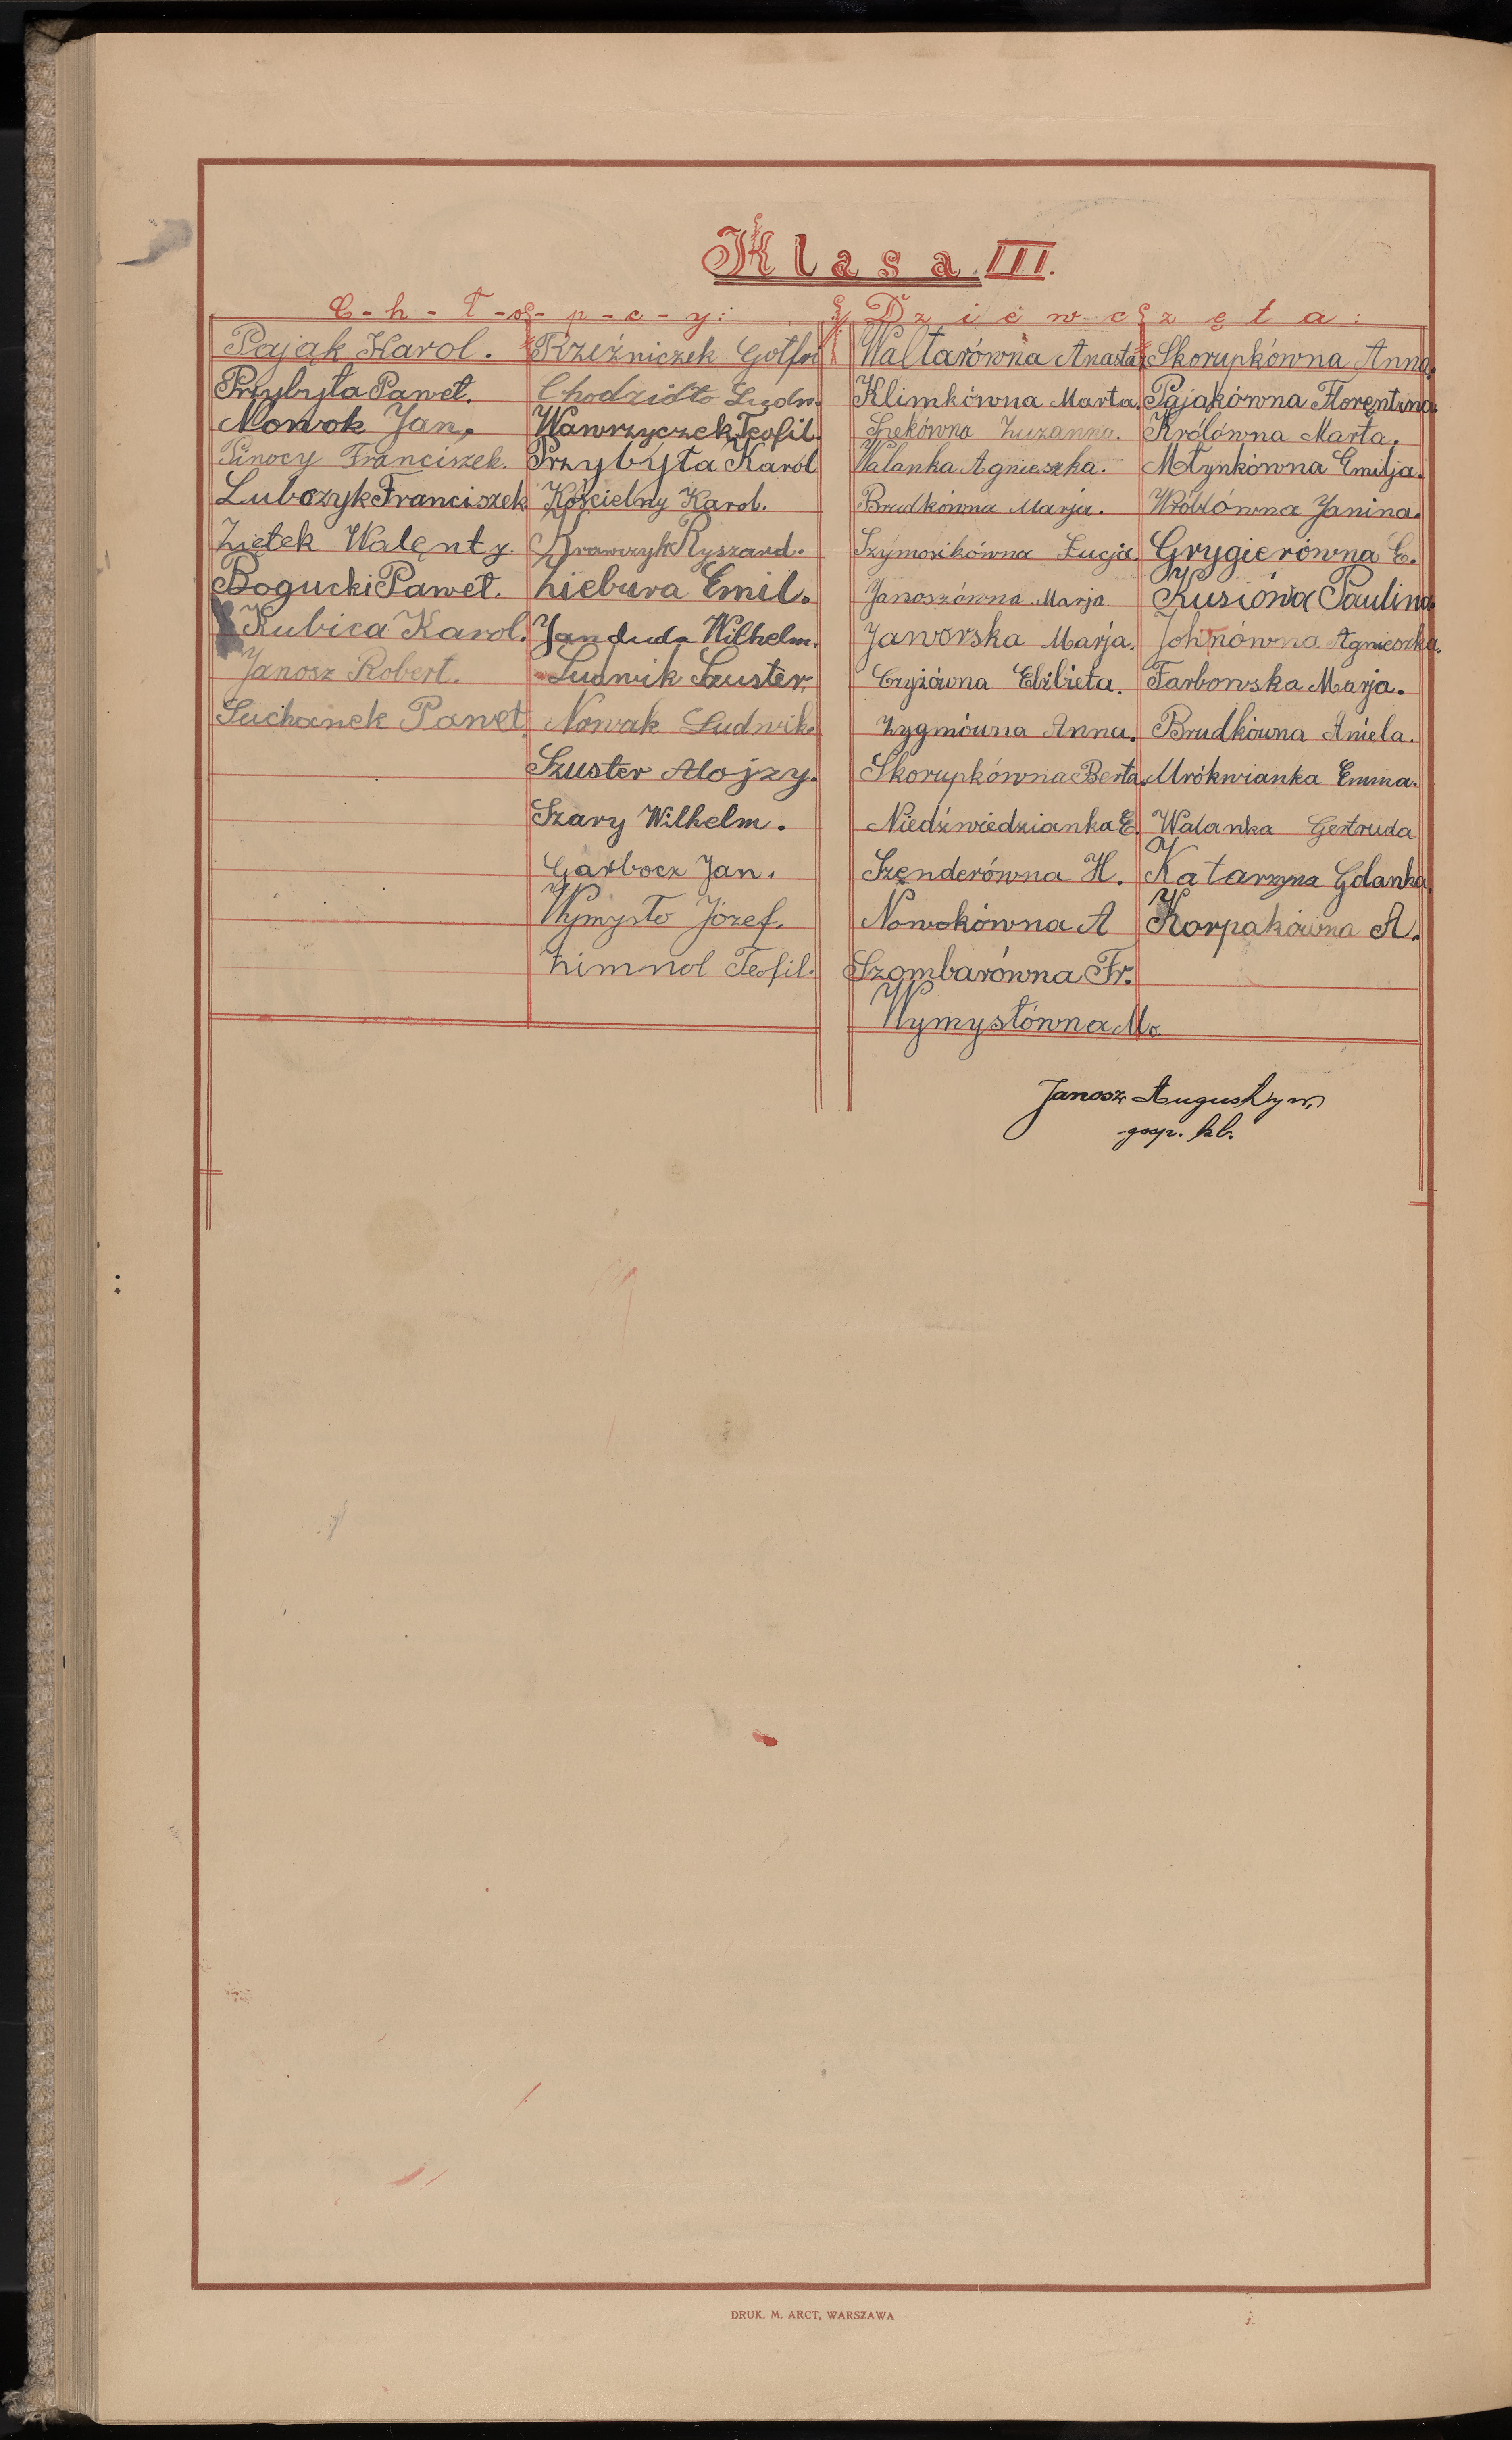 Klasa III.
C-h-ł-o-p-c-y: Dziewczęta:
Pająk Karol. Rzeźniczek Gotfri Waltarówna Anasta Skorupkówna Anna.
Przybyła Paweł. Chodzidło Ludw. Klimkówna Marta. Pająkówna Florentina.
Nowok Jan. Wawrzyczek Teofil. Zuzanna. Królówna Marta.
Pinocy Franciszek. Przybyła Karol Walanka Agnieszka. Młynkówna Emilja.
Lubczyk Franciszek Kościelny Karol. Brudkówna Marja. Wróblówna Janina.
Ziętek Walenty. Krawczyk Ryszard. Szymosikówna Łucja. Grygierówna E.
Bogucki Paweł. Ziebura Emil. Janoszówna Marja Kusiówa Paulina.
Kubica Karol. Janduda Wilhelm. Jaworska Marja. Johnówna Agnieszka.
Janosz Robert. Ludwik Szuster, Czyżówna Elżbieta. Farbowska Marja.
Suchanek Paweł. Nowak Ludwik. Zygmówna Anna. Brudkówna Aniela.
Szuster Alojzy. Skorupkówna Berta. Mrókwianka Emma.
Szary Wilhelm. Niedźwiedzianka E. Walanka Gertruda
Garbocz Jan. Szenderówna H. Katarzyna Golanka.
Wymysło Józef. Nowokówna A Karpakówna A.
Zimnol Teofil. Szombarówna Fr.
Wymysłówna M.
Janosz Augustyn,
gosp. kl.
DRUK. M. ARCT, WARSZAWA